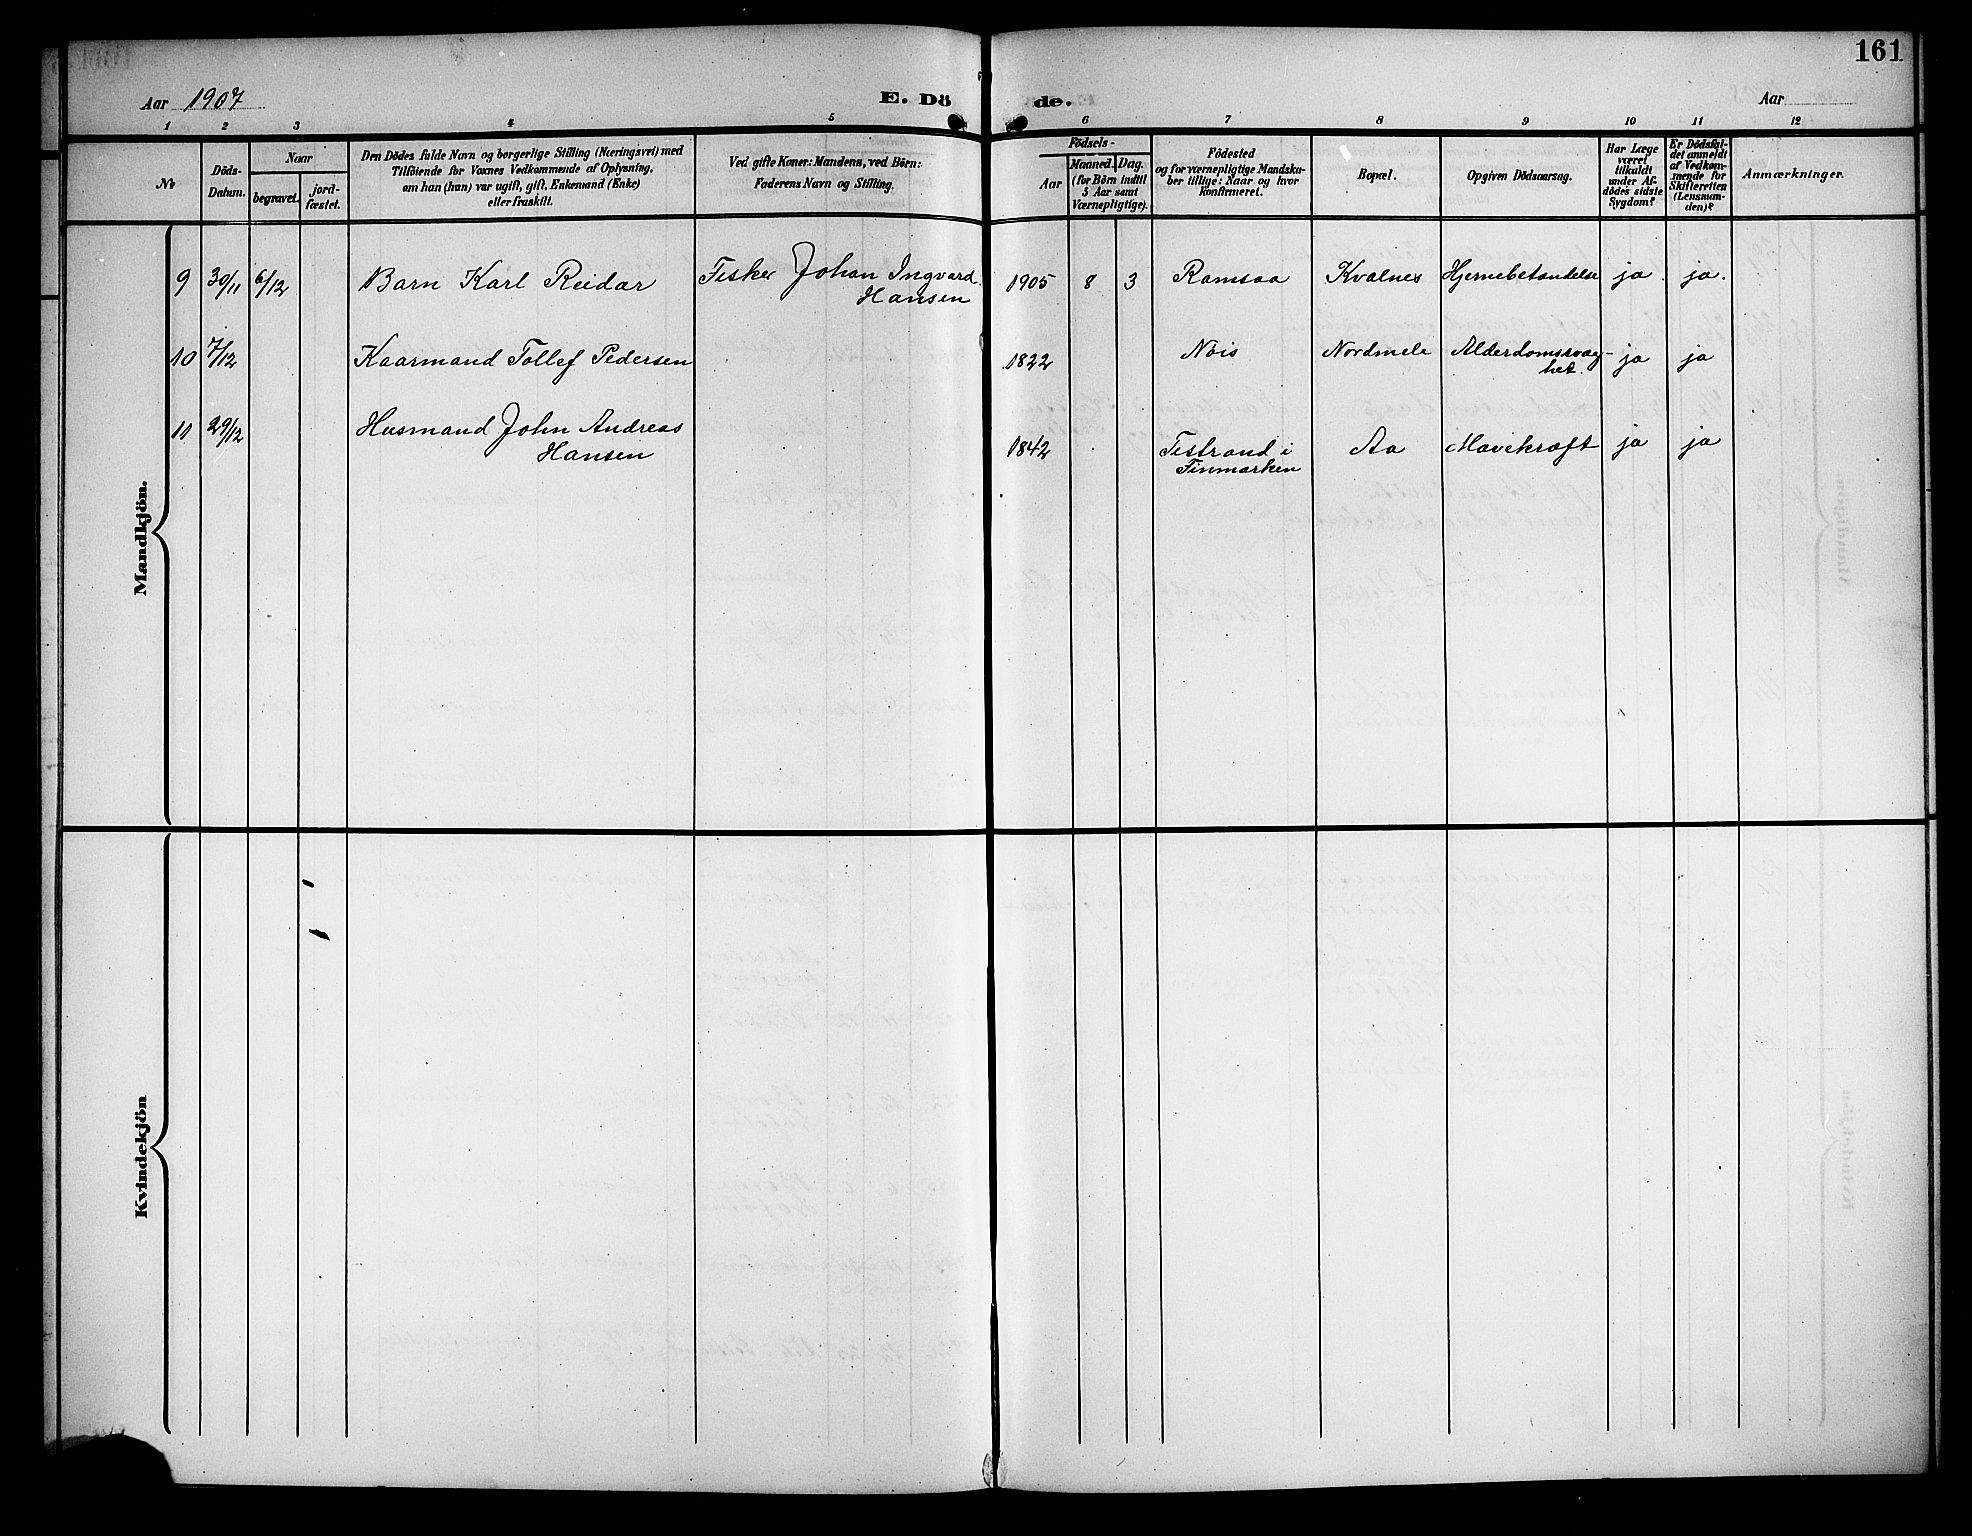 161
Aar 1907
E. Dö
de.
Aar
1 2 3 4 5 6 7 8 9 10 11 12
No
Döds-
Datum.
Naar
begravet.
jord-
fæstet.
Den Dödes fulde Navn og borgerlige Stilling (Næringsvei) med
Tilföiende for Voxnes Vedkommende af Oplysning,
om han (hun) var ugift, gift, Enkemand (Enke)
eller fraskilt.
Ved gifte Koner: Mandens, ved Börn:
Faderens Navn og Stilling.
Födsels-
Aar
Maaned. Dag.
(for Börn indtil
5 Aar samt
Værnepligtige).
Födested
og for værnepligtige Mandska-
ber tillige: Naar og hvor
Konfirmeret.
Bopæl.
Opgiven Dödsaarsag.
Har Læge
været
tilkaldt
under Af-
dödes sidste
Sygdom?
Er Dödsfal-
det anmeldt
af Vedkom-
mende for
Skifteretten
(Lensman-
den)?
Anmærkninger.
Mandkjön.
9 30/11 6/12 Barn Karl Reidar Fisker Johan Ingvard
Hansen
1905 8 3 Ramsaa Kvalnes Hjernebetændelse ja ja.
10 7/12 Kaarmand Tollef Pedersen
1822 Nöis Nordmele Alderdomssvag-
het. ja ja
11 29/12 Husmand John Andreas
Hansen
1842 Tistrand i
Finmarken Aa Mavekræft ja ja
Kvindekjön